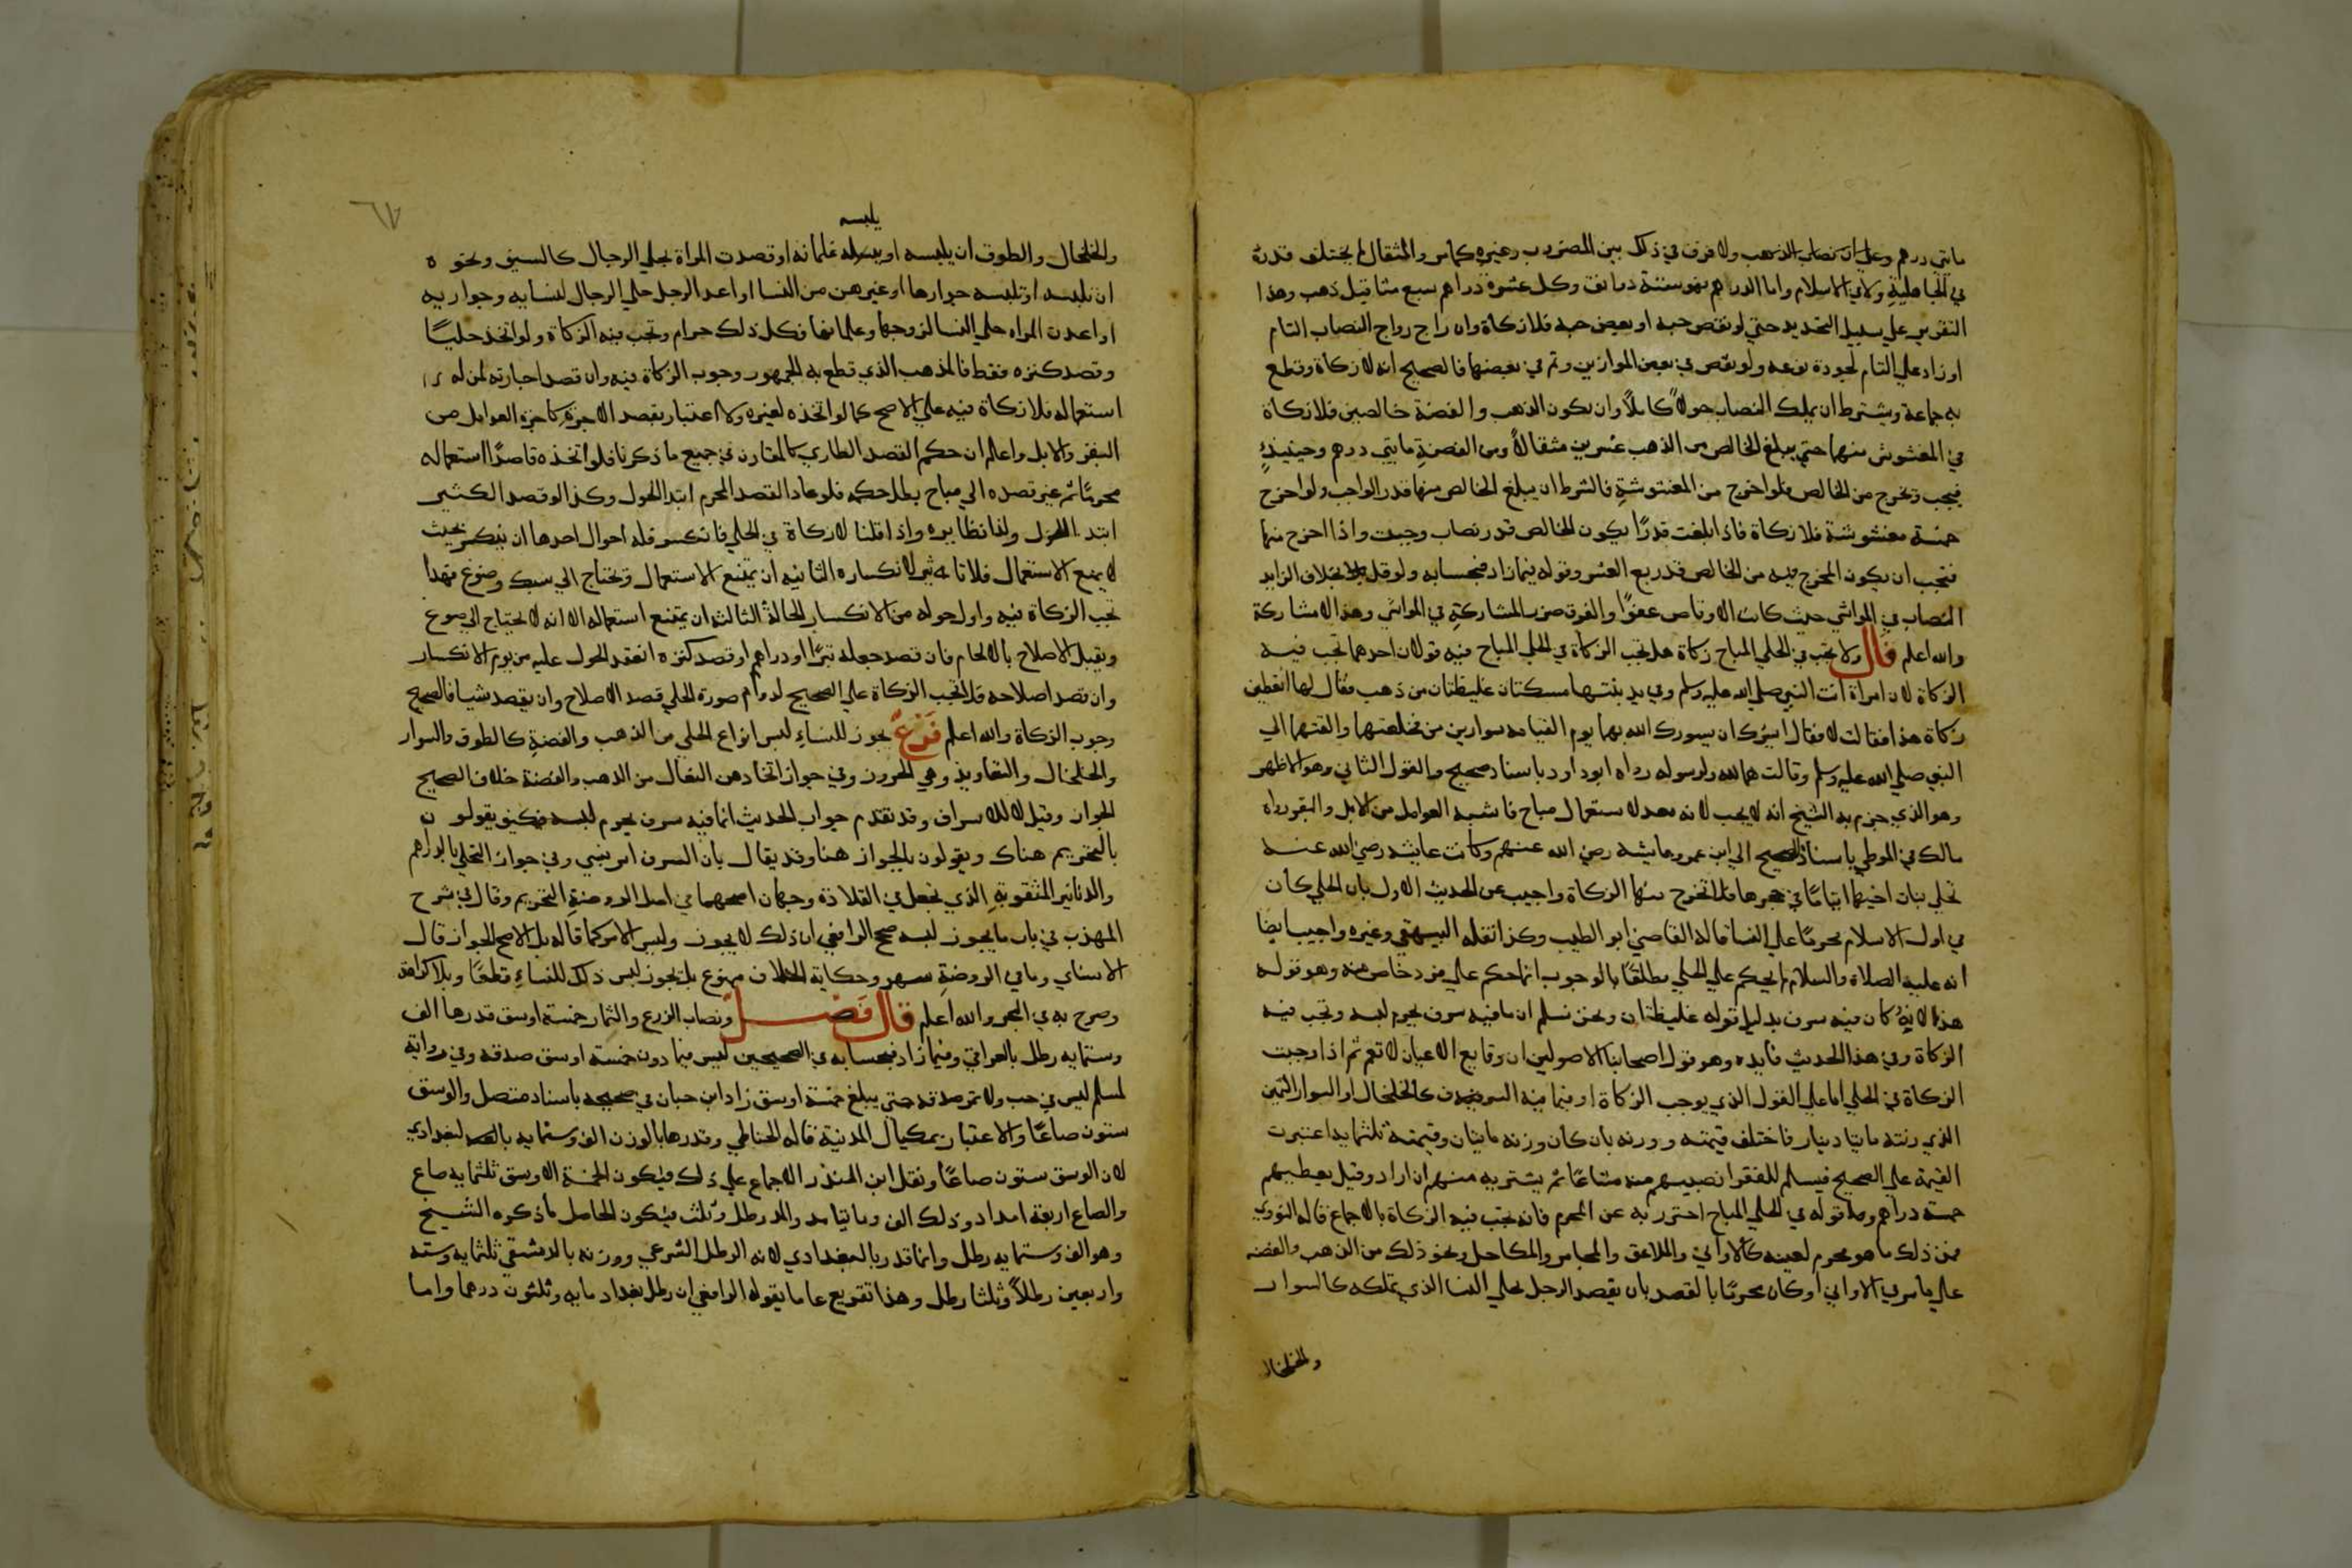 مايتي درهم وعلي ان نصاب الذهب ولا فرق في ذلك بين المضروب وغيره كما مر والمثقال لم يختلف قدره
في الجاهلية ولا في الاسلام واما الدراهم فهو ستة دوانق وكل عشرة دراهم سبع مثاقيل ذهب وهذا
التقرير علي سبيل التحديد حتي لو نقص حبه او بعض حبه فلا زكاة وان راج رواج النصاب التام
او زاد علي التام لجودة نوعه ولو نقص في بعض الموازين وتم في بعضها فالصحيح انه لا زكاة وقطع
به جماعة ويشترط ان يملك النصاب حولاً كاملاً وان يكون الذهب والفضة خالصين فلا زكاة
في المغشوش منهما حتي يبلغ الخالص من الذهب عشرين مثقالاً ومن الفضة مايتي درهم وحينيذٍ
فيجب ويخرج من الخالص فلو اخرج من المغشوشة فالشرط ان يبلغ الخالص منها قدر الواجب ولو اخرج
خمسة مغشوشة فلا زكاة فاذا بلغت قدرًا يكون الخالص قدر نصاب وجبت واذا اخرج منها
فتجب ان يكون المخرج فيه من الخالص قدر ربع العشر وقوله فيما زاد فبحسابه ولو قل بخلاف الزايد
النصاب في المواشي حيث كان الاوقاص عفوًا والفرق ضرر المشاركة في المواشي وهذا لا مشاركة
والله اعلم قال ولا تجب في الحلي المباح زكاة هل تجب الزكاة في الحلي المباح فيه قولان احدهما تجب فيه
الزكاة لان امراة اتت النبي صلي الله عليه وسلم وفي يد بنتها مسكتان غليظتان من ذهب فقال لها اتعطين
زكاة هذا فقالت لا فقال ايسرك ان يسورك الله بهما يوم القيامه سوارين من فخلعتهما والقتهما الي
النبي صلي الله عليه وسلم وقالت هما لله ولرسوله رواه ابو داود باسناد صحيح والقول الثاني وهو الاظهر
وهو الذي جزم به الشيخ انه لا يجب لانه معد لاستعمال مباح فاشبه العوامل من الابل والبقر رواه
مالك في الموطي باسناد الصحيح الي ابن عمر وعايشه رضي الله عنهم وكانت عايشه رضي الله عنه
تحلي بنات اخيها ايتامًا في حجرها فلا تخرج منها الزكاة واجيب عن الحديث الاول بان الحلي كان
في اول الاسلام محرمًا علي النسا قاله القاضي ابو الطيب وكذا نقله البيهقي وغيره واجيب ايضا
انه عليه الصلاة والسلام لم يحكم علي الحلي مطلقًا بالوجوب انما حكم علي فرد خاص منه وهو قوله
هذا لانه كان فيه سرف بدليل قوله غليظتان ونحن نسلم ان ما فيه سرف يحرم لبسه وتجب فيه
الزكاة وفي هذا الحديث فايده وهو قول اصحابنا الاصوليين ان وقايع الاعيان لا تعم ثم اذا وجبت
الزكاة في الحلي اما علي القول الذي يوجب الزكاة او فيما فيه السرف كالخلخال او السوار الثمين
الذي زنته مايتا دينار فاختلف قيمته ووزنه بان كان وزنه مايتان وقيمته ثلثمايه اعتبرت
القيمة علي الصحيح فيسلم للفقرا نصيبهم منه مشاعًا ثم يشتريه منهم ان اراد وقيل يعطيهم
خمسة دراهم وما قوله في الحلي المباح احترز به عن المحرم فانه تجب فيه الزكاة بالاجماع قاله النووي
فمن ذلك ما هو محرم لعينه كالاواني والملاعق والمجامر والمكاحل ونحو ذلك من الذهب والفضه
علي ما مر في الاواني او كان محرمًا بالقصد بان يقصد الرجل بحلي النسا الذي يملكه كالسوار
والخلخال
٦٧
يلبسه
والخلخال والطوق ان يلبسه او غلمانه او قصدت المراة بحلي الرجال كالسيف ونحوه
ان تلبسه او تلبسه جوارها او غيرهن من النسا او اعد الرجل حلي الرجال لنسايه وجواريه
او اعدت المراه حلي النسا لزوجها وغلمانها فكل ذلك حرام وتجب فيه الزكاة ولو اتخذ حليًا
وقصد كنزه فقط فالمذهب الذي قطع به الجمهور وجوب الزكاة فيه وان قصد اجارته لمن له
استعماله فلا زكاة فيه علي الاصح كما لو اتخذه لغيره ولا اعتبار بقصد الاجرة كاجرة العوامل من
البقر والابل واعلم ان حكم القصد الطاري كالمقارن في جميع ما ذكرنا فلو اتخذه قاصدًا استعماله
محرمًا ثم غير قصده الي مباح بطل حكمه فلو عاد القصد المحرم ابتدا الحول وكذا لو قصد الكثير
ابتدا الحول وله نظايره واذا قلنا لا زكاة في الحلي فانكسر فله احوال احدها ان ينكسر بحيث
لا يمنع الاستعمال فلا تاثير لانكساره الثانيه ان يمتنع الاستعمال ويحتاج الي سبك وصوغ فهذا
تجب الزكاة فيه واول حوله من الانكسار الحالة الثالثه ان يمتنع استعماله الا انه لا يحتاج الي صوغ
ويقبل الاصلاح بالالحام فان قصد جعله تبرًا او دراهم او قصد كنزه انعقد الحول عليه من يوم الانكسار
وان قصد اصلاحه فلا تجب الزكاة علي الصحيح لدوام صورة الحلي قصد الاصلاح وان يقصد شيا فالصحيح
وجوب الزكاة والله اعلم فَرْعٌ يجوز للنساءِ لبس انواع الحلي من الذهب والفضة كالطوق والسوار
والخلخال والتعاويذ وهي الحروز وفي جواز اتخاذهن النعال من الذهب والفضة خلاف الصحيح
الجواز وقيل لا للاسراف وقد تقدم جواب الحديث انما فيه سرف يحرم لبسه فكيف يقولون
بالتحريم هناك ويقولون بالجواز هنا وقد يقال بان السرف امر نسبي وفي جواز التحلي بالدراهم
والدنانير المثقوبة الذي تجعل في القلادة وجهان اصحهما في اصل الروضة التحريم وقال في شرح
المهذب في باب ما يجوز لبسه صحح الرافعي ان ذلك لا يجوز وليس الامر كما قاله بل الاصح الجواز قال
الاسناي وما في الروضة سهو وحكاية الخلاف ممنوع بل يجوز لبس ذلك للنساءِ قطعًا وبلا كراهة
وصرح به في البحر والله اعلم قال فَصْل ونصاب الزرع والثمار خمسة اوسق قدرها الف
وستمايه رطل بالعراقي وفيما زاد فبحسابه في الصحيحين ليس فيما دون خمسة اوسق صدقه وفي رواية
لمسلم ليس في حب ولا تمر صدقة حتي يبلغ خمسة اوسق زاد ابن حبان في صحيحه باسناد متصل والوسق
ستون صاعًا والاعتبار بمكيال المدينة قاله الحناطي وقدرها بالوزن الف وستمايه البغدادي
لان الوسق ستون صاعًا ونقل ابن المنذر الاجماع علي ذلك فيكون الخمسة الاوسق ثلثمايه صاع
والصاع اربعة امداد وذلك الف ومايتا مد والمد رطل وثلث فيكون الحاصل ما ذكره الشيخ
وهو الف وستمايه رطل وانما قدر بالبغدادي لانه الرطل الشرعي ووزنه بالدمشقي ثلثمايه وستة
واربعين رطلاً وثلثا رطل وهذا تفريع علي ما يقوله الرافعي ان رطل بغداد مايه وثلثون درهما واما